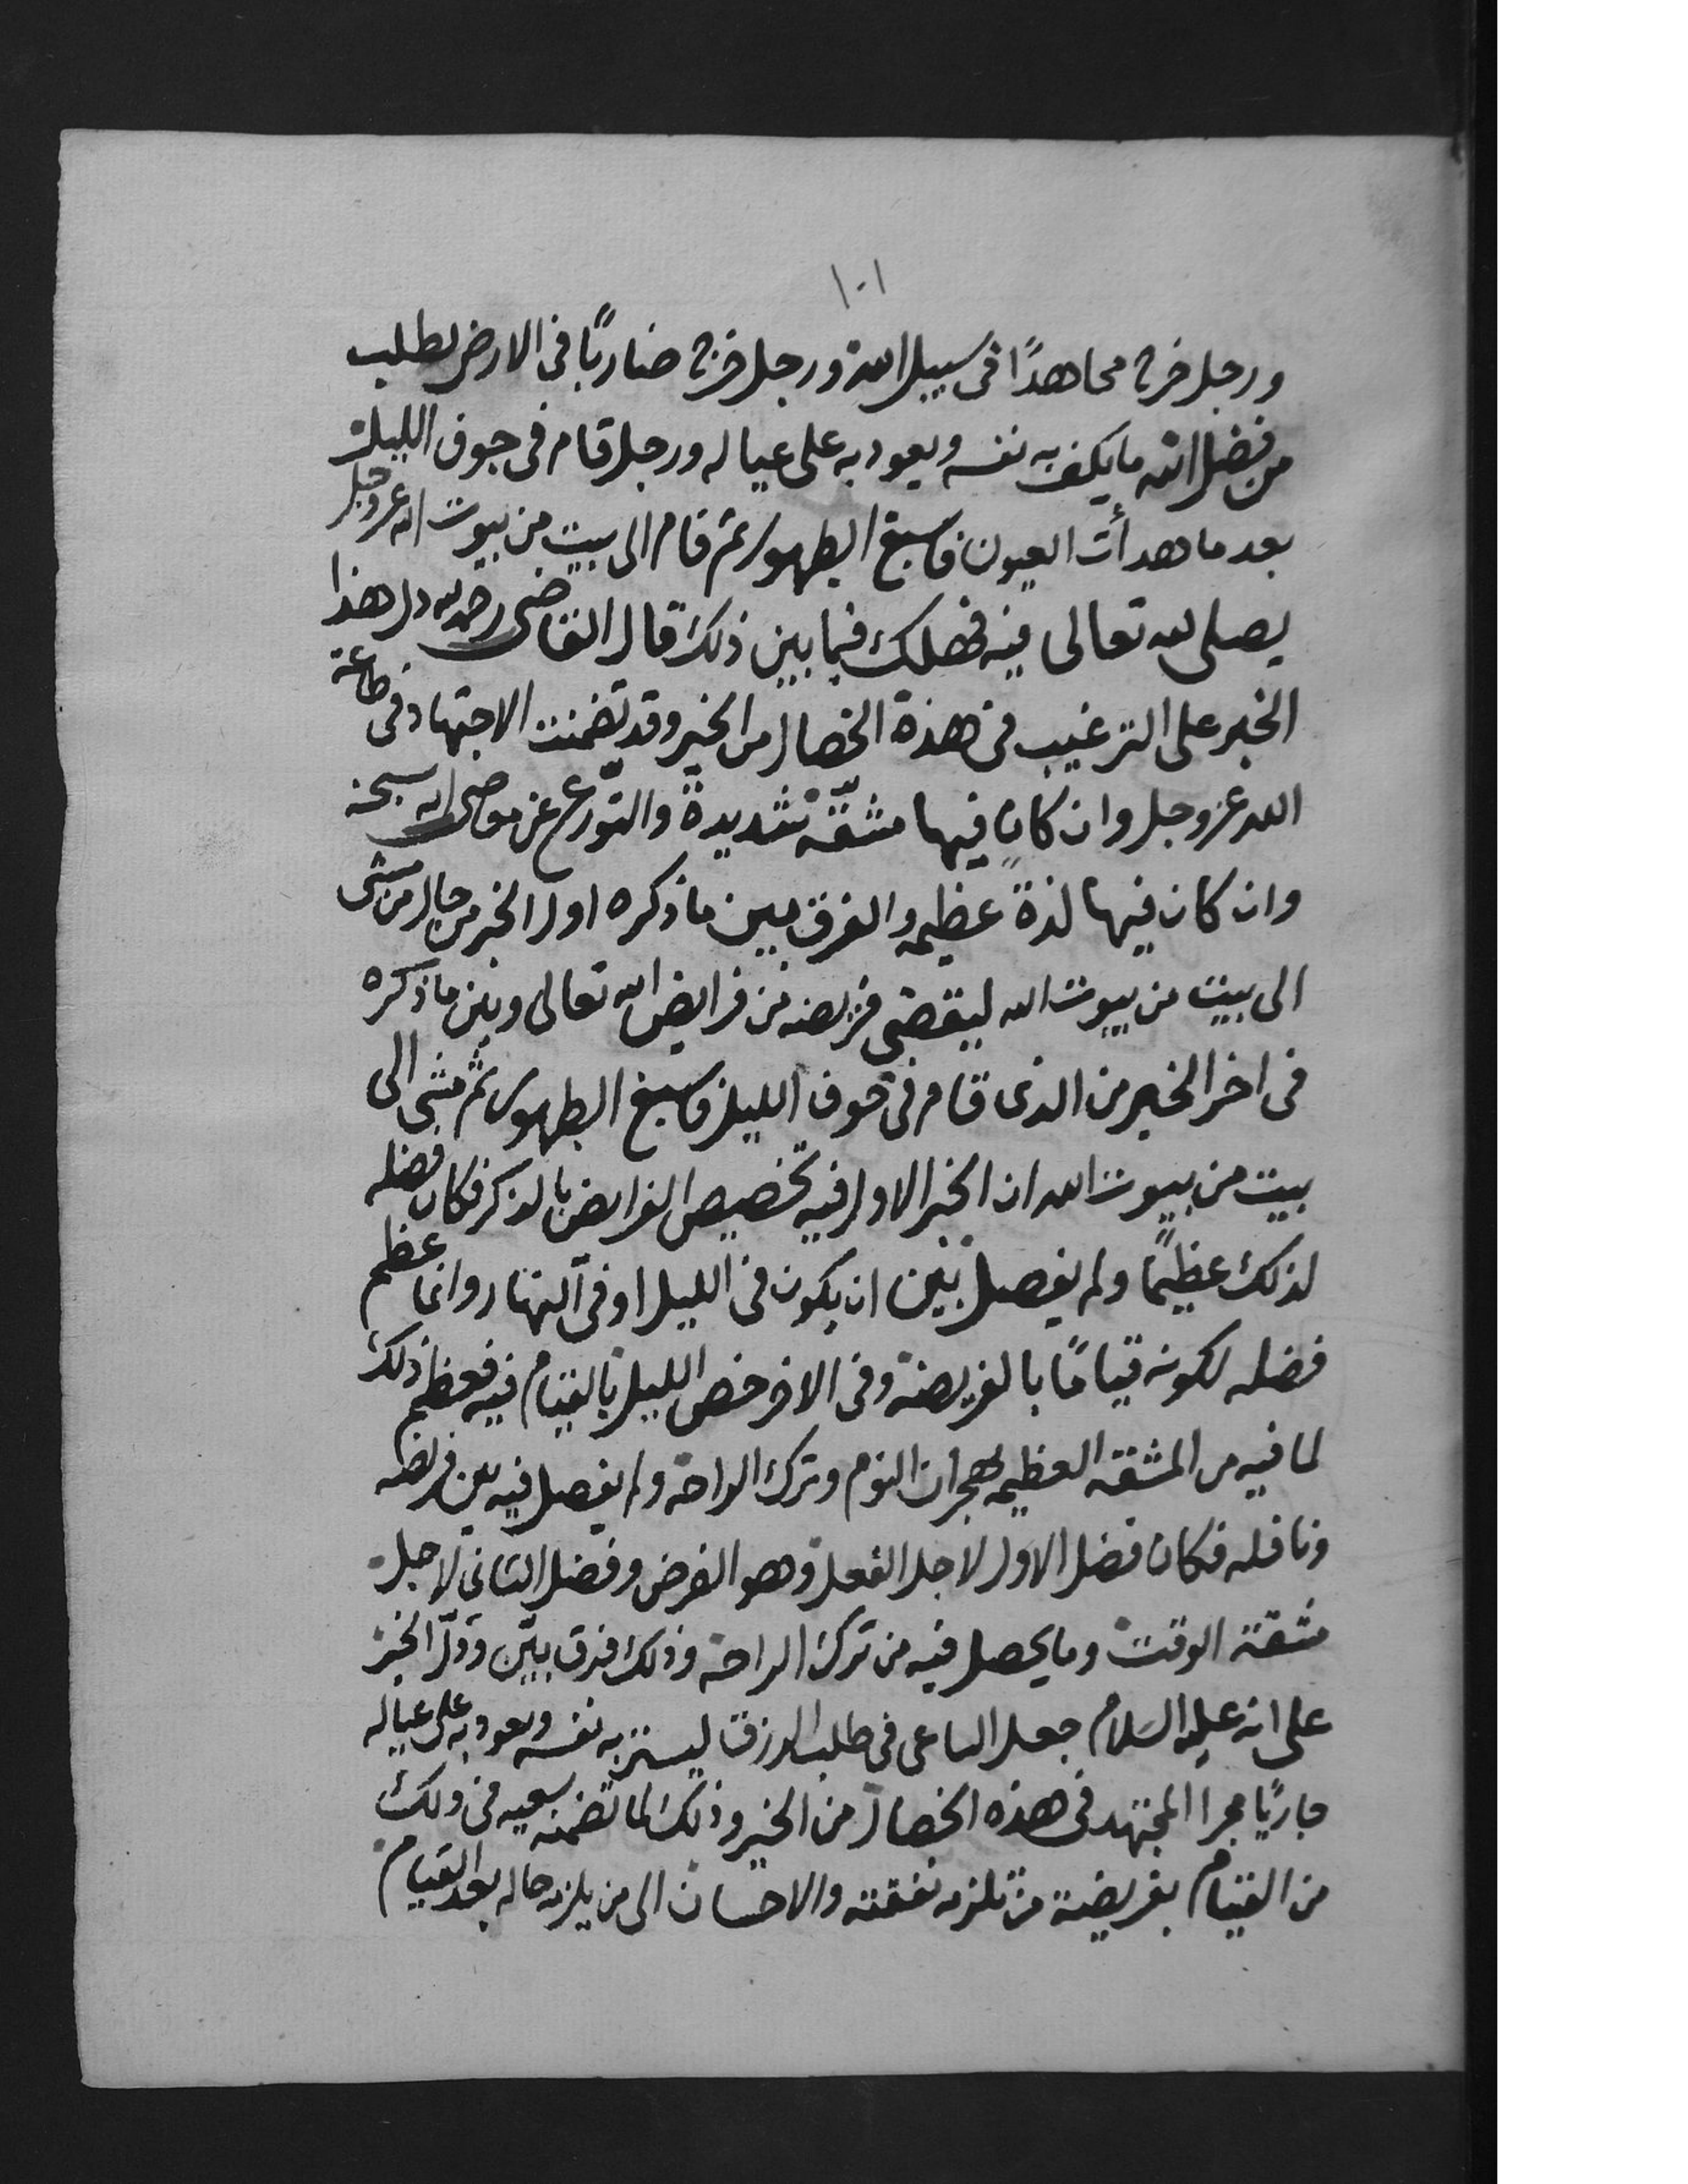 ١٠١
ورجل خرج مجاهدًا فى سبيل الله ورجل خرج ضاربًا فى الارض يطلب
من فضل الله ما يكف به نفسه ويعود به على عياله ورجل قام فى جوف الليل
بعد ما هدأت العيون فاسبغ الطهور ثم قام الى بيت من بيوت الله عز وجل
يصلى لله تعالى فيه فهلك فيما بين ذلك قال القاضى رحمه الله دل هذا
الخبر على الترغيب فى هذة الخصال من الخير وقد تضمنت الاجتهاد فى طاعة
الله عز وجل وان كان فيها مشقّة شديدة والتورّع عن معاصى الله سبحنه
وان كان فيها لذة عظيمه والفرق بين ما ذكره اول الخبر من حال من مشى
الى بيت من بيوت الله ليقضى فريضه من فرايض الله تعالى وبين ما ذكره
فى اخر الخبر من الذى قام فى جوف الليل فاسبغ الطهور ثم مشى الى
بيت من بيوت الله ان الخبر الاول فيه تخصيص الفرايض بالذكر فكان فضله
لذلك عظيمًا ولم يفصل بين ان يكون فى الليل او فى النهار وانما عظم
فضله لكونه قيامًا بالفريضة وفى الاخر خص الليل بالقيام فيه فعظم ذلك
لما فيه من المشقه العظيمه لهجران النوم وترك الراحة ولم يفصل فيه بين فريضه
ونافله فكان فضل الاول لاجل الفعل وهو الفرض وفضل الثانى لاجل
مشقة الوقت وما يحصل فيه من ترك الراحة وذلك فرق بيّن ودلّ الخبر
على انه عليه السلام جعل الساعى فى طلب الرزق ليستر به نفسه ويعود به على عياله
جاريًا مجرا المجتهد فى هذه الخصال من الخير وذلك لما تضمنه سعيه فى ذلك
من القيام بفريضة من تلزمه نفقته والاحسان الى من يلزمه حاله بعد القيام